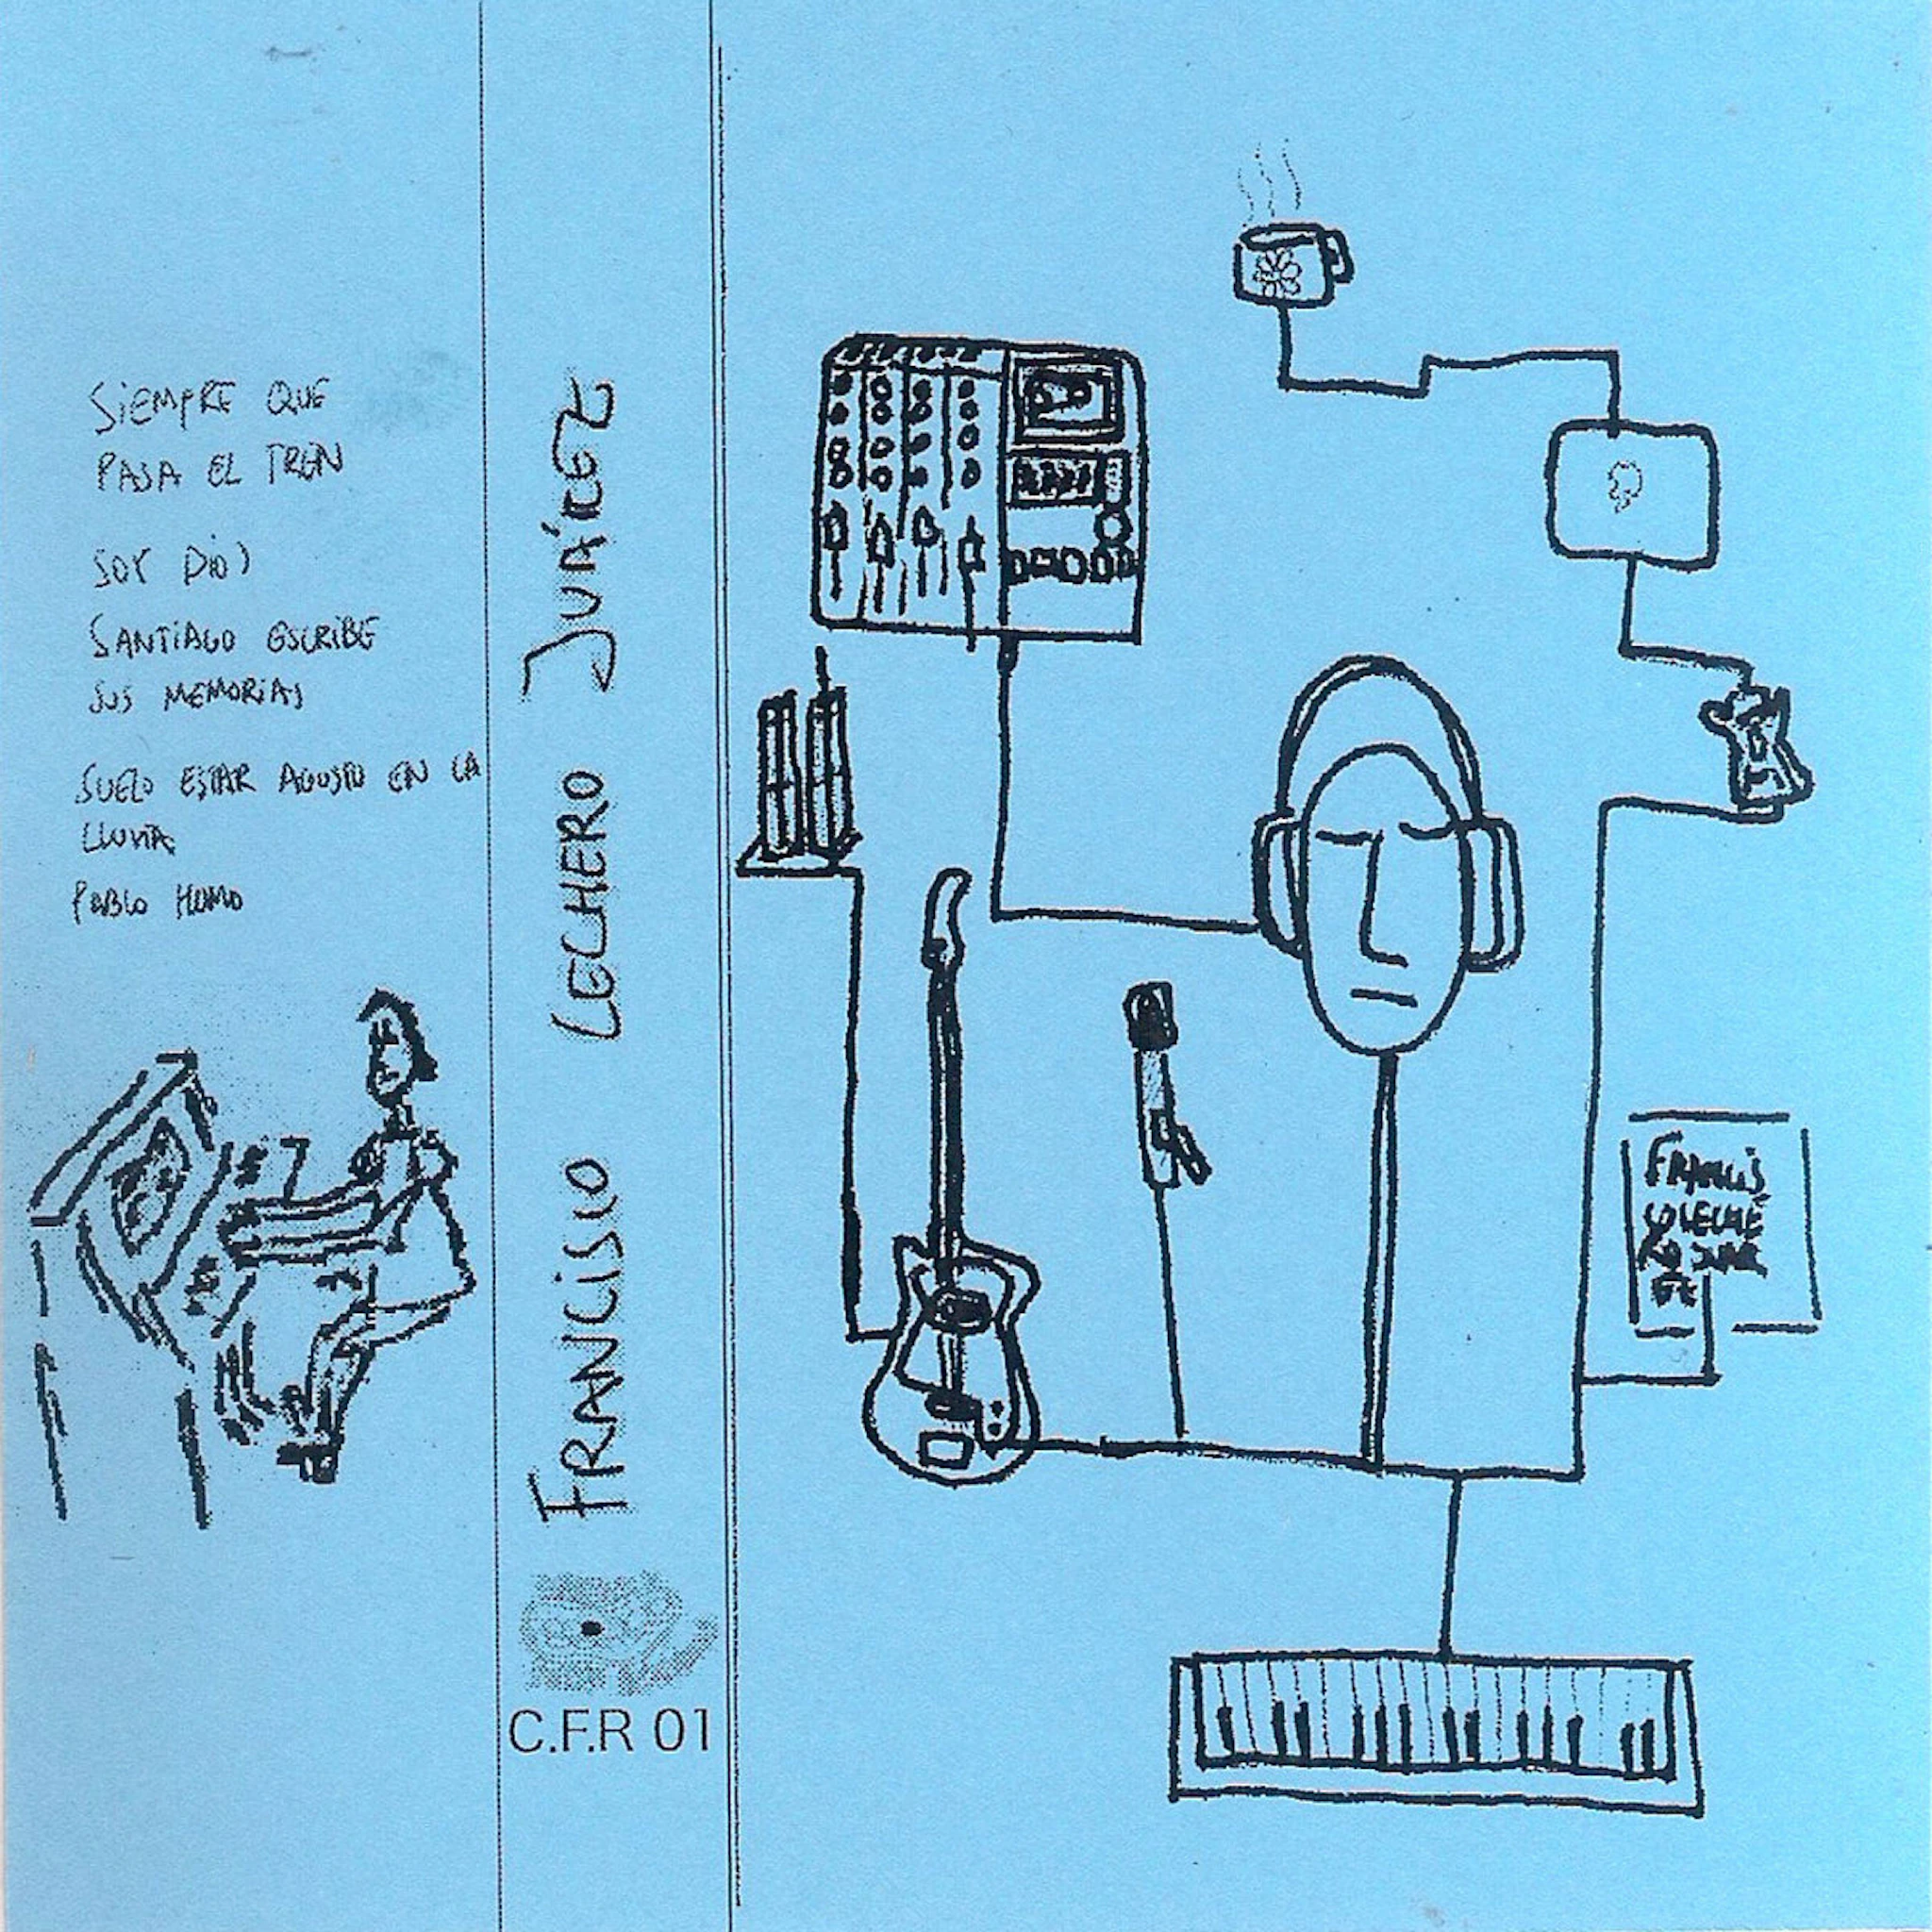 SIEMPRE QUE
PASA EL TREN
SOY DIOS
SANTIAGO ESCRIBE
SUS MEMORIAS
SUELO ESTAR AGUSTO EN LA
LLUVIA
PABLO HUMO
FRANCISCO LECHERO JUÁREZ
C.F.R 01
FRANCIS
COLECHE
RO JUAR
EZ